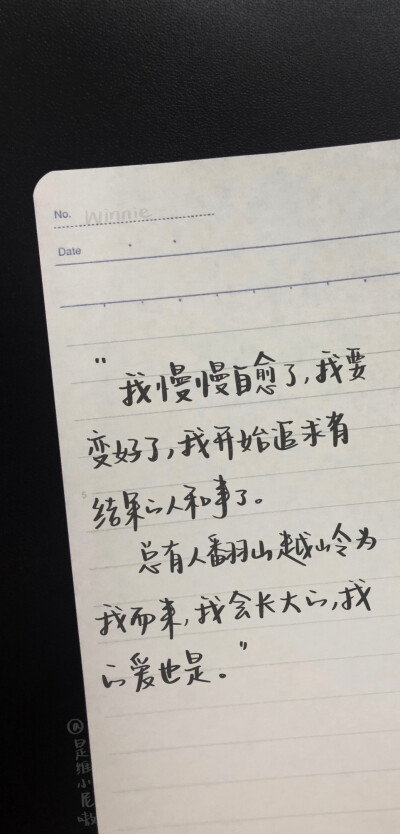 No. Winnie
Date
"我慢慢自愈了,我要
变好了,我开始追求有
结果的人和事了。
总有人翻山越岭为
我而来,我会长大的,我
的爱也是。"
@是推小尾